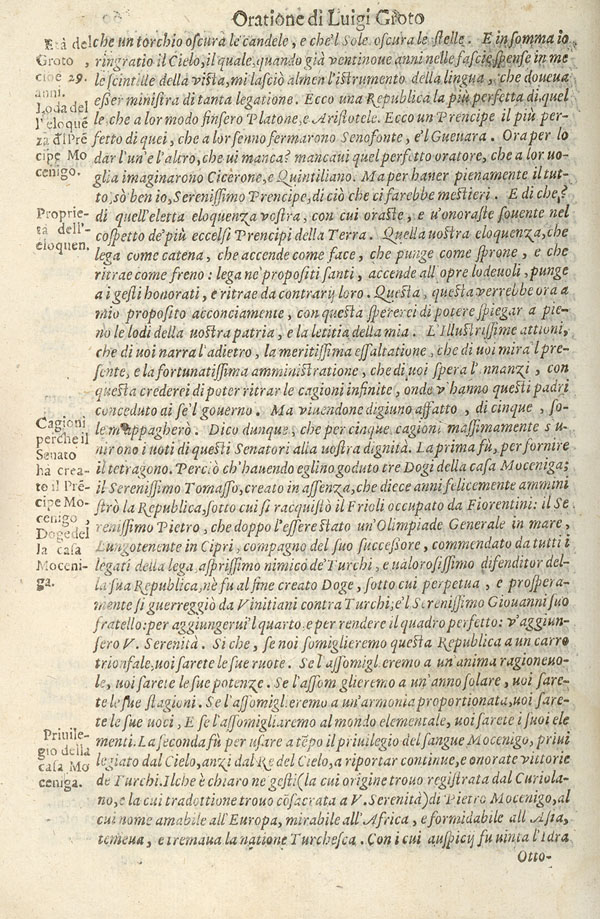 Oratione di Luigi Groto
Età del
Groto,
cioè 29.
anni.
Loda del
l'eloquẽ
za d'l Prẽ
cipe Mo-
cenigo.
Proprie-
tà dell'-
eloquen.
Cagioni
perche il
Senato
ha crea-
to il Prẽ-
cipe Mo-
cenigo,
Doge del
la casa
Moceni-
ga.
Priuile-
gio della
casa Mo
ceniga.
che un torchio oscura le candele, e che'l Sole oscura le stelle. E in somma io
ringratio il Cielo, il quale, quando già ventinoue anni nelle fascie, spense in me
le scintille della vista, mi lasciò almen l'istrumento della lingua, che doueua
esser ministra di tanta legatione. Ecco una Republica la più perfetta di quel
le che a lor modo finsero Platone, e Aristotele. Ecco un Prencipe il più per-
fetto di quei, che a lor senno fermarono Senofonte, e'l Gueuara. Ora per lo
dar l'un'e l'altro, che ui manca? mancaui quel perfetto oratore, che a lor uo-
glia imaginarono Cicerone, e Quintiliano. Ma per hauer pienamente il tut-
to, sò ben io, Serenissimo Prencipe, di ciò che ci farebbe mestieri. E di che?
di quell'eletta eloquenza vostra, con cui oraste, e u'onoraste souente nel
cospetto de' più eccelsi Prencipi della Terra. Quella uostra eloquenza, che
lega come catena, che accende come face, che punge come sprone, e che
ritrae come freno: lega ne' propositi santi, accende all'opre lodeuoli, punge
a i gesti honorati, e ritrae da contrarij loro. Questa, questa verrebbe ora a
mio proposito acconciamente, con questa spererei di potere spiegar a pie-
no le lodi della uostra patria, e la letitia della mia. L'Illustrissime attioni,
che di uoi narra l'adietro, la meritissima essaltatione, che di uoi mira'l pre-
sente, e la fortunatissima amministratione, che di uoi spera l'innanzi, con
questa crederei di poter ritrar le cagioni infinite, onde v'hanno questi padri
conceduto di se'l gouerno. Ma viuendone digiuno affatto, di cinque, so-
le m'appagherò. Dico dunque, che per cinque cagioni massimamente s'u-
nirono i uoti di questi Senatori alla uostra dignità. La prima fù, per fornire
il tetragono. Perciò ch'hauendo eglino goduto tre Dogi della casa Moceniga;
il Serenissimo Tomasso, creato in assenza, che diece anni felicemente ammini
strò la Republica, sotto cui si racquistò il Frioli occupato da Fiorentini: il Se
renissimo Pietro, che doppo l'essere stato un'Olimpiade Generale in mare,
Luogotenente in Cipri, compagno del suo successore, commendato da tutti i
legati della lega, asprissimo nimico de' Turchi, e ualorosissimo difenditor del-
la sua Republica, nè fu al fine creato Doge, sotto cui perpetua, e prospera-
mente si guerreggiò da Vinitiani contra Turchi; e'l Serenissimo Giouanni suo
fratello: per aggiungerui'l quarto, e per rendere il quadro perfetto: v'aggiun-
sero V. Serenità. Si che, se noi somiglieremo questa Republica a un carro
trionfale, uoi sarete le sue ruote. Se l'assomiglieremo a un'anima ragioneuo-
le, uoi sarete le sue potenze. Se l'assomiglieremo a un'anno solare, uoi sare-
te le sue stagioni. Se l'assomiglieremo a un'armonia proportionata, uoi sare-
te le sue uoci, E se l'assomigliaremo al mondo elementale, uoi sarete i suoi ele
menti. La seconda fù per usare a tẽpo il priuilegio del sangue Mocenigo, priui
legiato dal Cielo, anzi dal Re del Cielo, a riportar continue, e onorate vittorie
de Turchi. Ilche è chiaro ne gesti (la cui origine trouo registrata dal Curiola-
no, e la cui tradottione trouo cõsacrata a V. Serenità) di Pietro Mocenigo, al
cui nome amabile all'Europa, mirabile all'Africa, e formidabile all'Asia,
temeua, e tremaua la natione Turchesca. Con i cui auspicij fu uinta l'Idra
Otto-